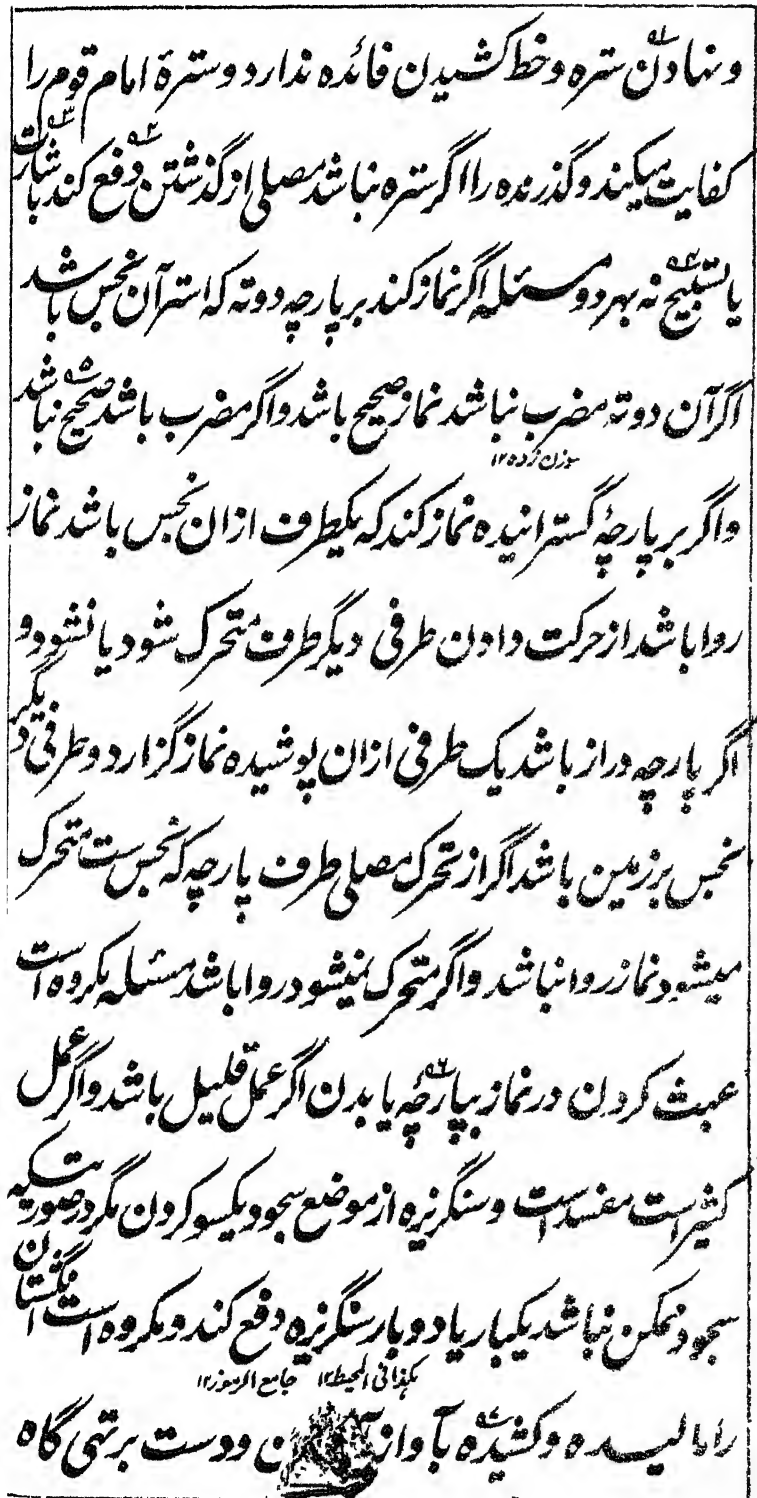 ونهادن ستره وخط کشیدن فائده ندارد وسترۀ امام قوم را
کفایت میکند وگذرنده را اگر ستره نباشد مصلی از گذشتن دفع کند باشارت
یا تسبیح نه بهر دو مسئله اگر نماز کند بر پارچه دوته که استر آن نجس باشد
اگر آن دوته مضرب نباشد نماز صحیح باشد واگر مضرب باشد صحیح نباشد
سوزن زده ۱۲
واگر بر پارچۀ گسترانیده نماز کند که یکطرف ازان نجس باشد نماز
روا باشد از حرکت دادن طرفی دیگر طرف متحرک شود یا نشود و
اگر پارچه دراز باشد یک طرفی ازان پوشیده نماز گزارد وطرفی دیگر
نجس بر زمین باشد اگر از تحرک مصلی طرف پارچه که نجس ست متحرک
میشود نماز روا نباشد واگر متحرک نمیشود روا باشد مسئله مکروه است
عبث کردن در نماز بپارچۀ یا بدن اگر عمل قلیل باشد واگر عمل
کثیر است مفسد است وسنگریزه از موضع سجود یکسو کردن مگر در صورتیکه
سجود ممکن نباشد یکبار یا دوبار سنگریزه دفع کند ومکروه است انگشتان
هکذا فی المحیط ۱۲ جامع الرموز ۱۲
را مالیده وکشیده بآواز ودست بر تهی گاه